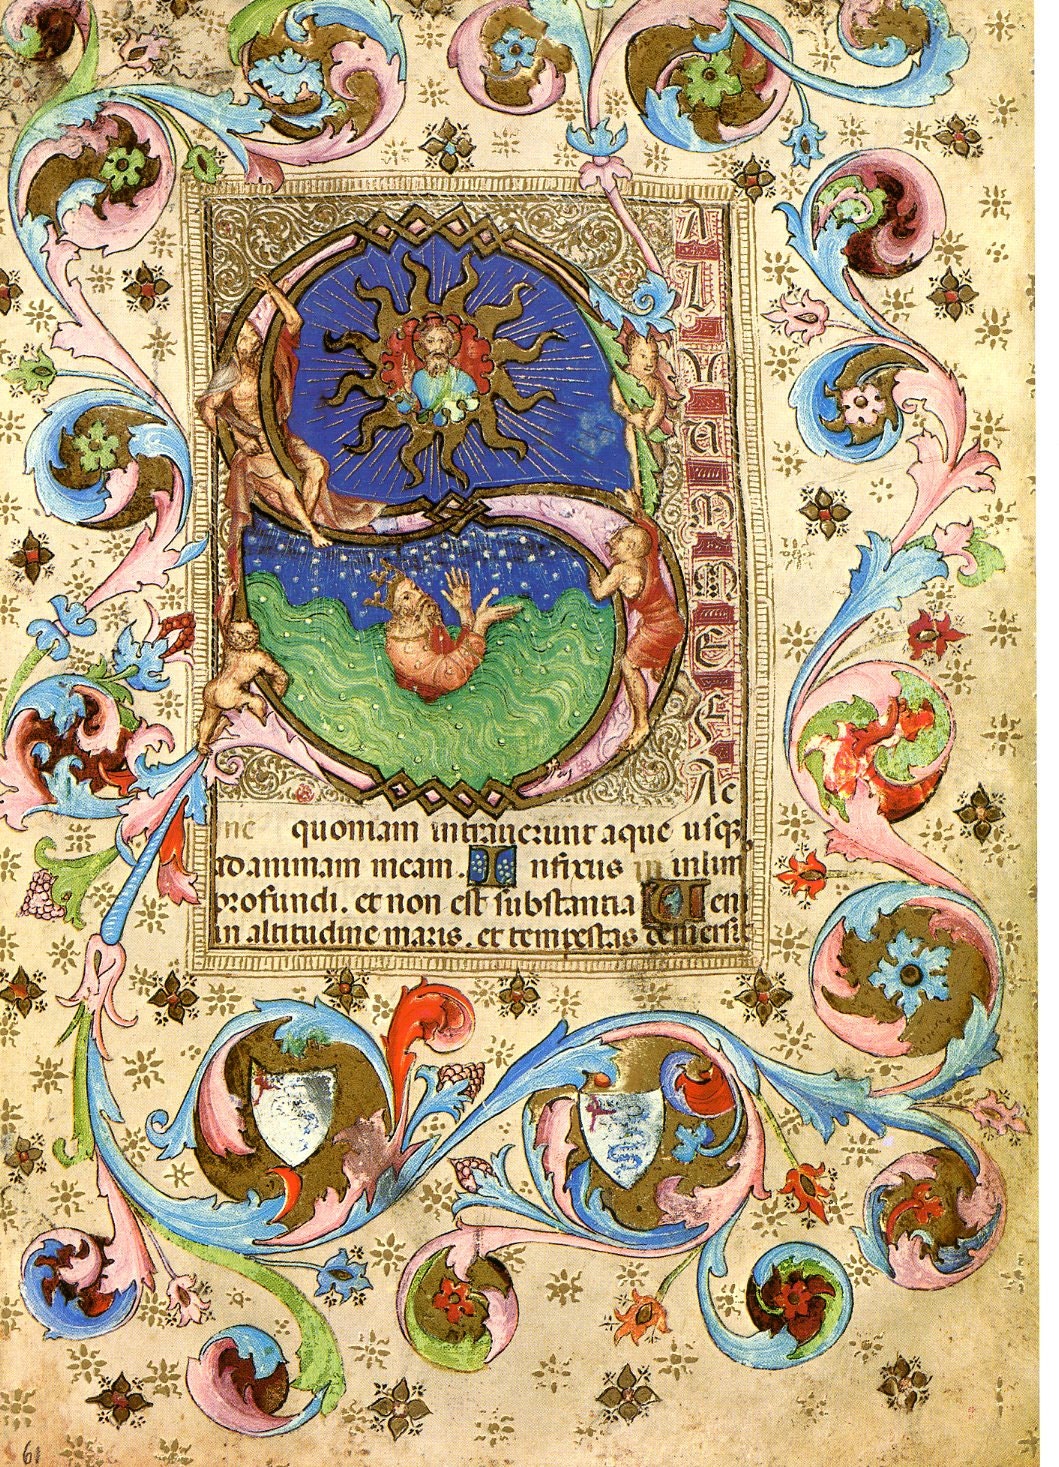 S
A
L
V
U
M
M
E
F
Ac
quoniam intrauerunt aque usq
ad animam meam. Infixus in inlim
profundi. et non est substantia Ueni
in altitudine maris. et tempestas demersit
61